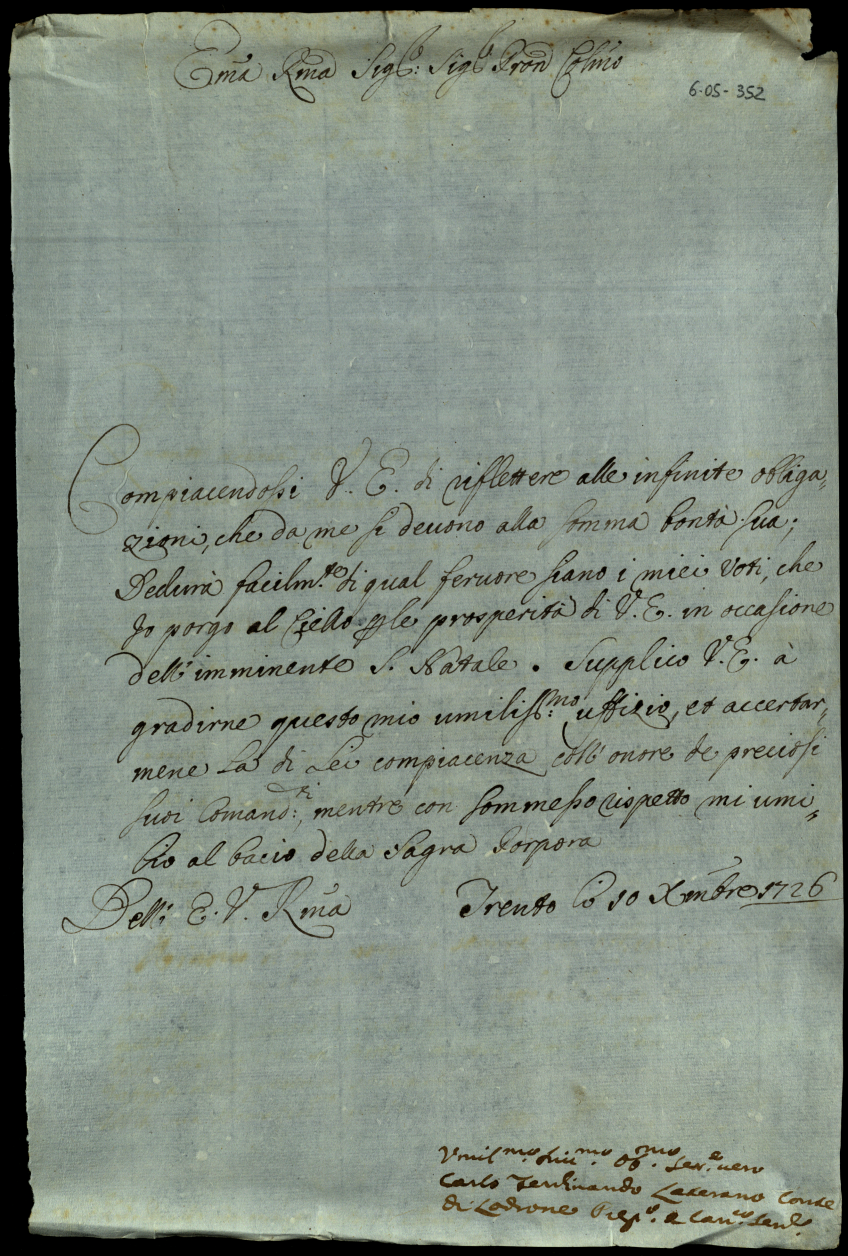 Em̃a Rm̃a Sig.e: Sig.e Pron͂ Colmo
6-05-352
Compiacendosi V. E. di riflettere alle infinite obliga,,
zioni, che da me si deuono alla somma bontà sua;
Dedurà facilm.te di qual feruore siano i miei voti, che
Jo porgo al Ciello p le prosperità di V. E. in occasione
dell'imminente S. Natale. Supplico V. E. à
gradirne questo mio umiliss.mo uffizio, et accertar,,
mene La di Lei compiacenza coll'onore de preciosi
suoi Comand.ti, mentre con sommesso rispetto mi umi,,
lio al bacio della Sagra Porpora
Dell: E. V. Rm̃a Trento li 10 Xmbre 1726
Vmil.mo Ob.mo Ser.e uero
Carlo Ferdinando Laterano Conte
di Lodrone